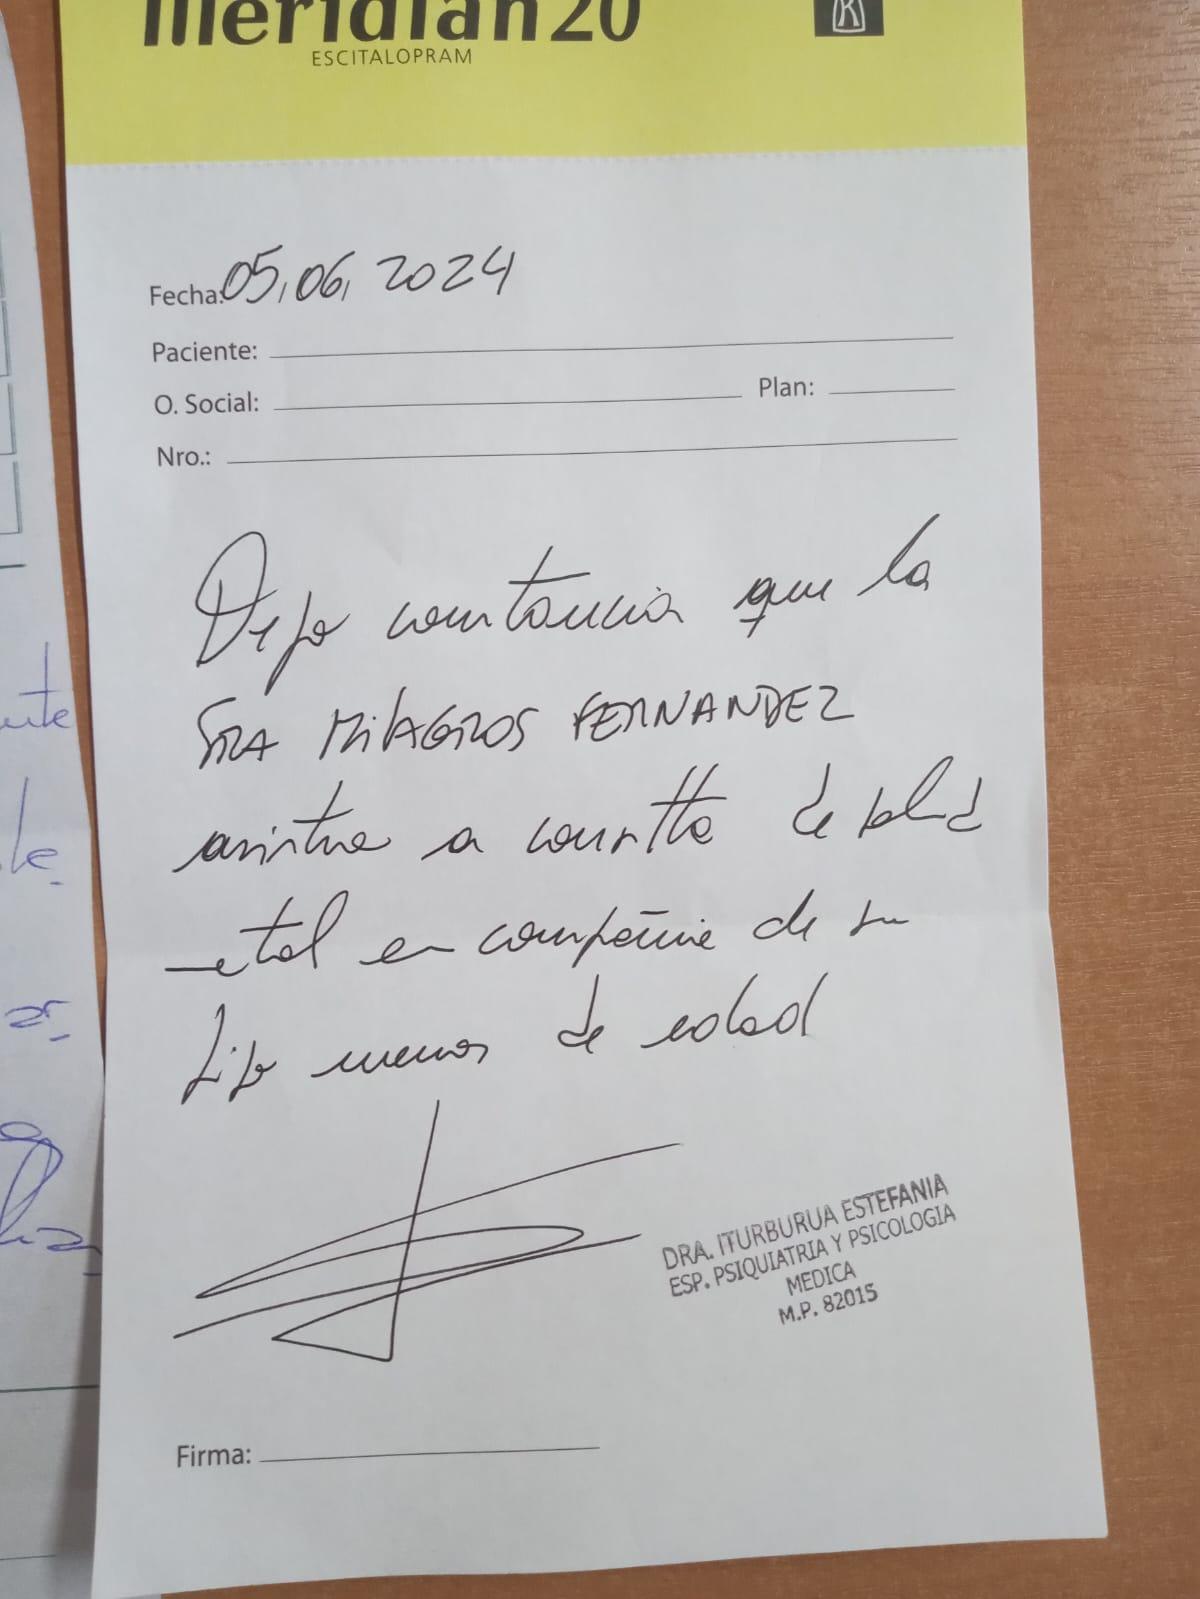 meridian20
ESCITALOPRAM
Fecha: 05,06, 2024
Paciente:
O. Social: Plan:
Nro.:
Dejo constancia que la
SRA MILAGROS FERNANDEZ
asistio a consulta de salud
mental en compañia de su
hijo menor de edad
DRA. ITURBURUA ESTEFANIA
ESP. PSIQUIATRIA Y PSICOLOGIA
MEDICA
M.P. 82015
Firma: